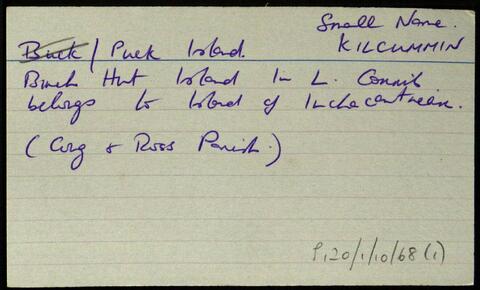 Small Name.
KILCUMMIN
Buck / Puck Island.
Hut Island in L. Corrib
belongs to Island of
(Cong & Ross Parish.)
P120/1/10/68(1)